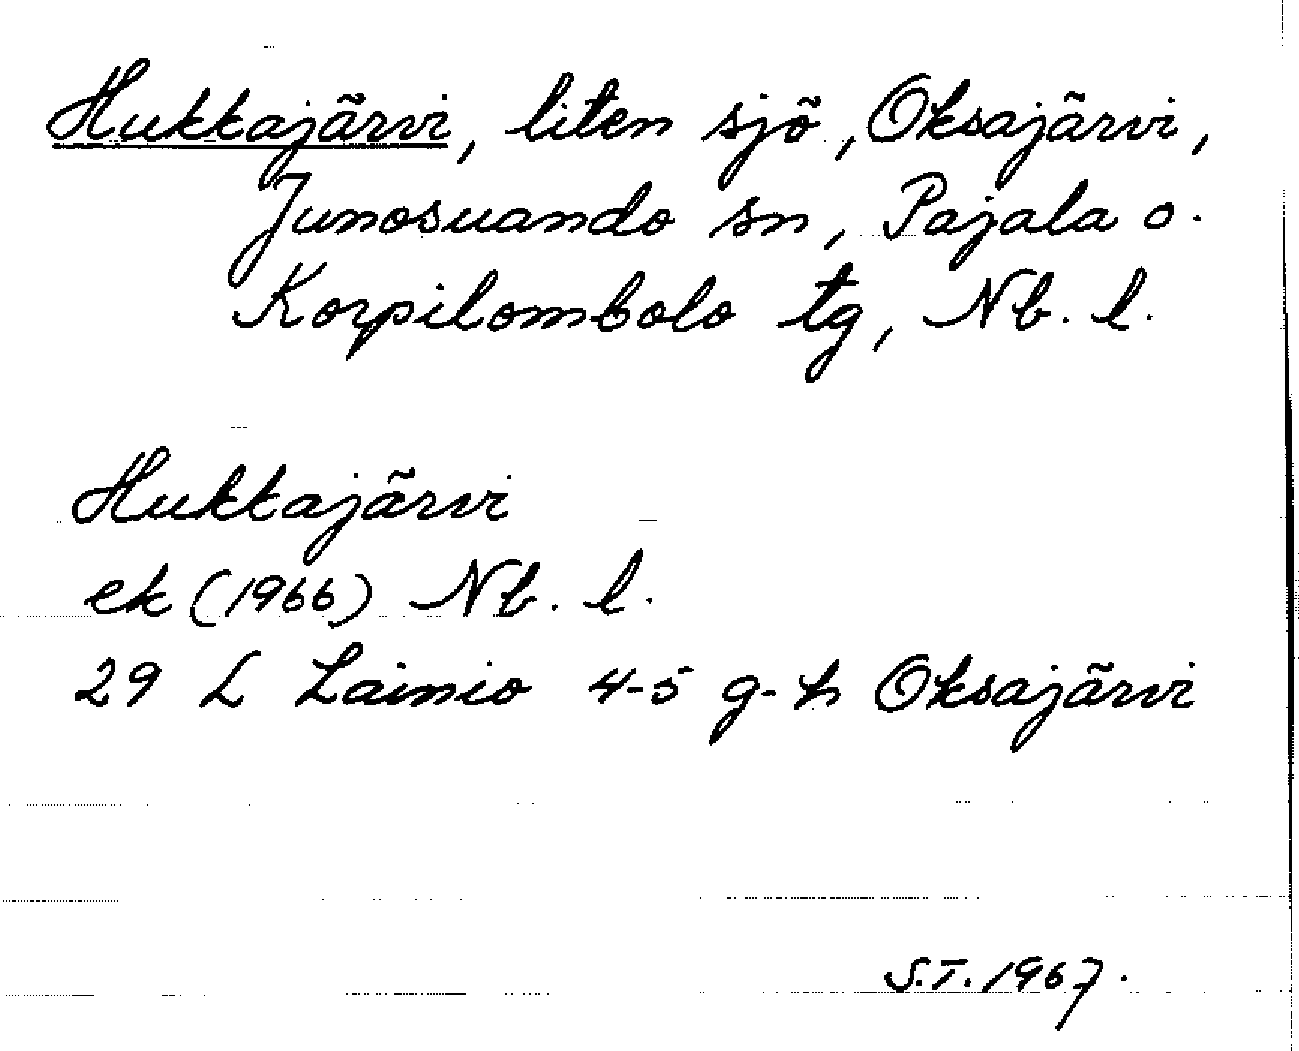 Hukkajärvi, liten sjö, Oksajärvi,
Junosuando sn, Pajala o.
Korpilombolo tg, Nb. l.
Hukkajärvi
ek (1966) Nb. l.
29 L Lainio 4-5 g-h Oksajärvi
S.T. 1967.